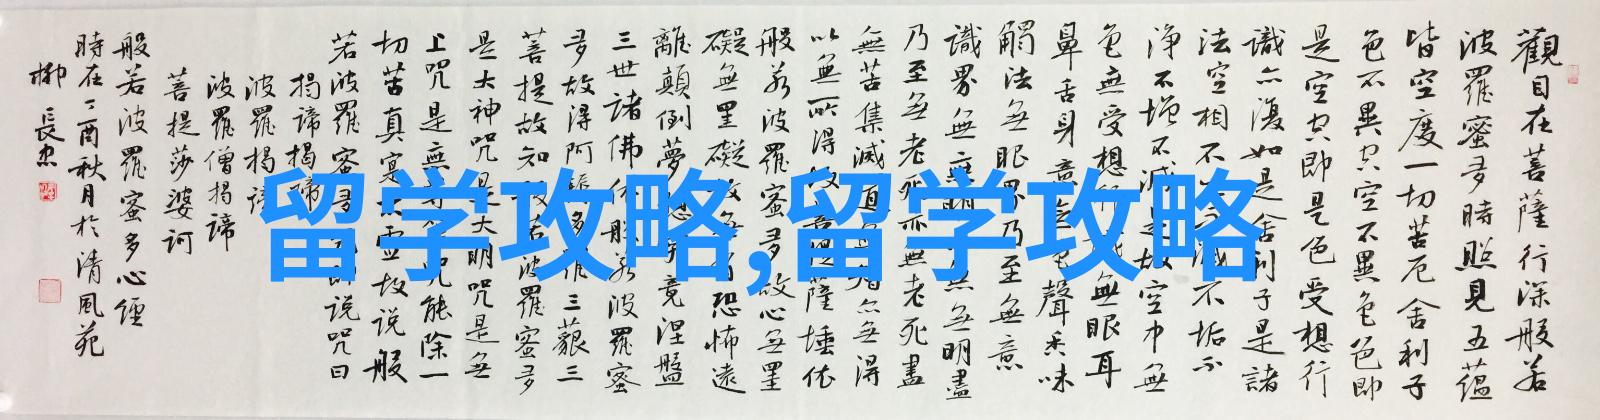 觀自在菩薩行深般若
波羅蜜多時照見五蘊
皆空度一切苦厄舍利子
色不異空空不異色色即
是空空即是色受想行
識亦復如是舍利子是諸
法空相不生不滅不垢不
淨不增不減是故空中無
色無受想行識無眼耳
鼻舌身意無色聲香味
觸法無眼界乃至無意
識界無無明亦無無明盡
乃至無老死亦無老死盡
無苦集滅道無智亦無得
以無所得故菩提薩埵依
般若波羅蜜多故心無罣
礙無罣礙故無有恐怖遠
離顛倒夢想究竟涅盤
三世諸佛依般若波羅蜜
多故得阿耨多羅三藐三
菩提故知般若波羅蜜多
是大神咒是大明咒是無
上咒是無等等咒能除一
切苦真實不虛故說般
若波羅蜜多咒即說咒曰
揭諦揭諦
波羅揭諦
波羅僧揭諦
菩提莎婆訶
般若波羅蜜多心經
時在丁酉秋月於清風苑
柳長忠
留学攻略,留学攻略